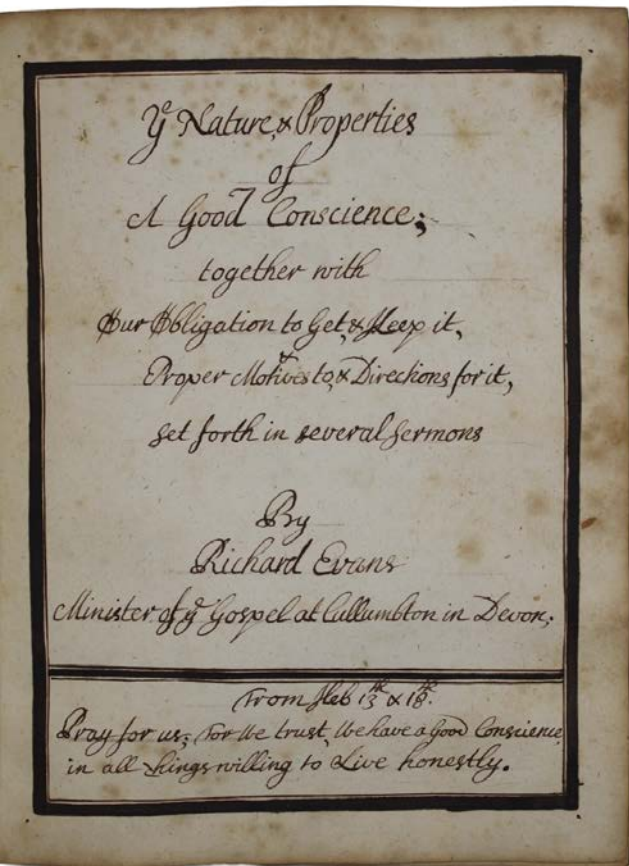 Yᵉ Nature, & Properties
of
A Good Conscience;
together with
Our Obligation to Get, & Keep it,
Proper Motives to, & Directions for it,
set forth in several sermons
By
Richard Evans
Minister of yᵉ Gospel at Cullumbton in Devon;
From Heb 13ᵗʰ & 18ᵗʰ.
Pray for us; For We trust, We have a Good Conscience
in all things willing to Live honestly.